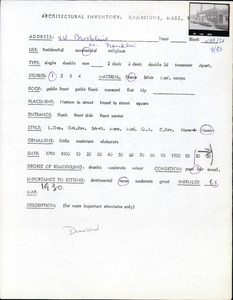 ARCHITECTURAL INVENTORY, CAMBRIDGE, MASS.
ADDRESS: 44 Brookline Tract Block
cor. Franklin
USE: Residential commercial religious
TYPE: single double row 2 deck 3 deck double 3d tenement Apart.
STORIES: 1 2 3 4 MATERIAL: Frame Brick Mxd, comps
ROOF: gable front gable flank mansard flat hip
PLACEMENT: Narrow to street broad to street square
ENTRANCE: flank front side front center
STYLE:
ORNAMENT: little moderate elaborate
DATE: 1790 1800 10 20 30 40 50 60 70 80 90 1900 10 20
DEGREE OF REMODELING: drastic moderate minor CONDITION: poor fair good
IMPORTANCE TO SETTING: detrimental none moderate great INITIALED
MAP 1930.
DESCRIPTION: (for more important structures only)
Demolished